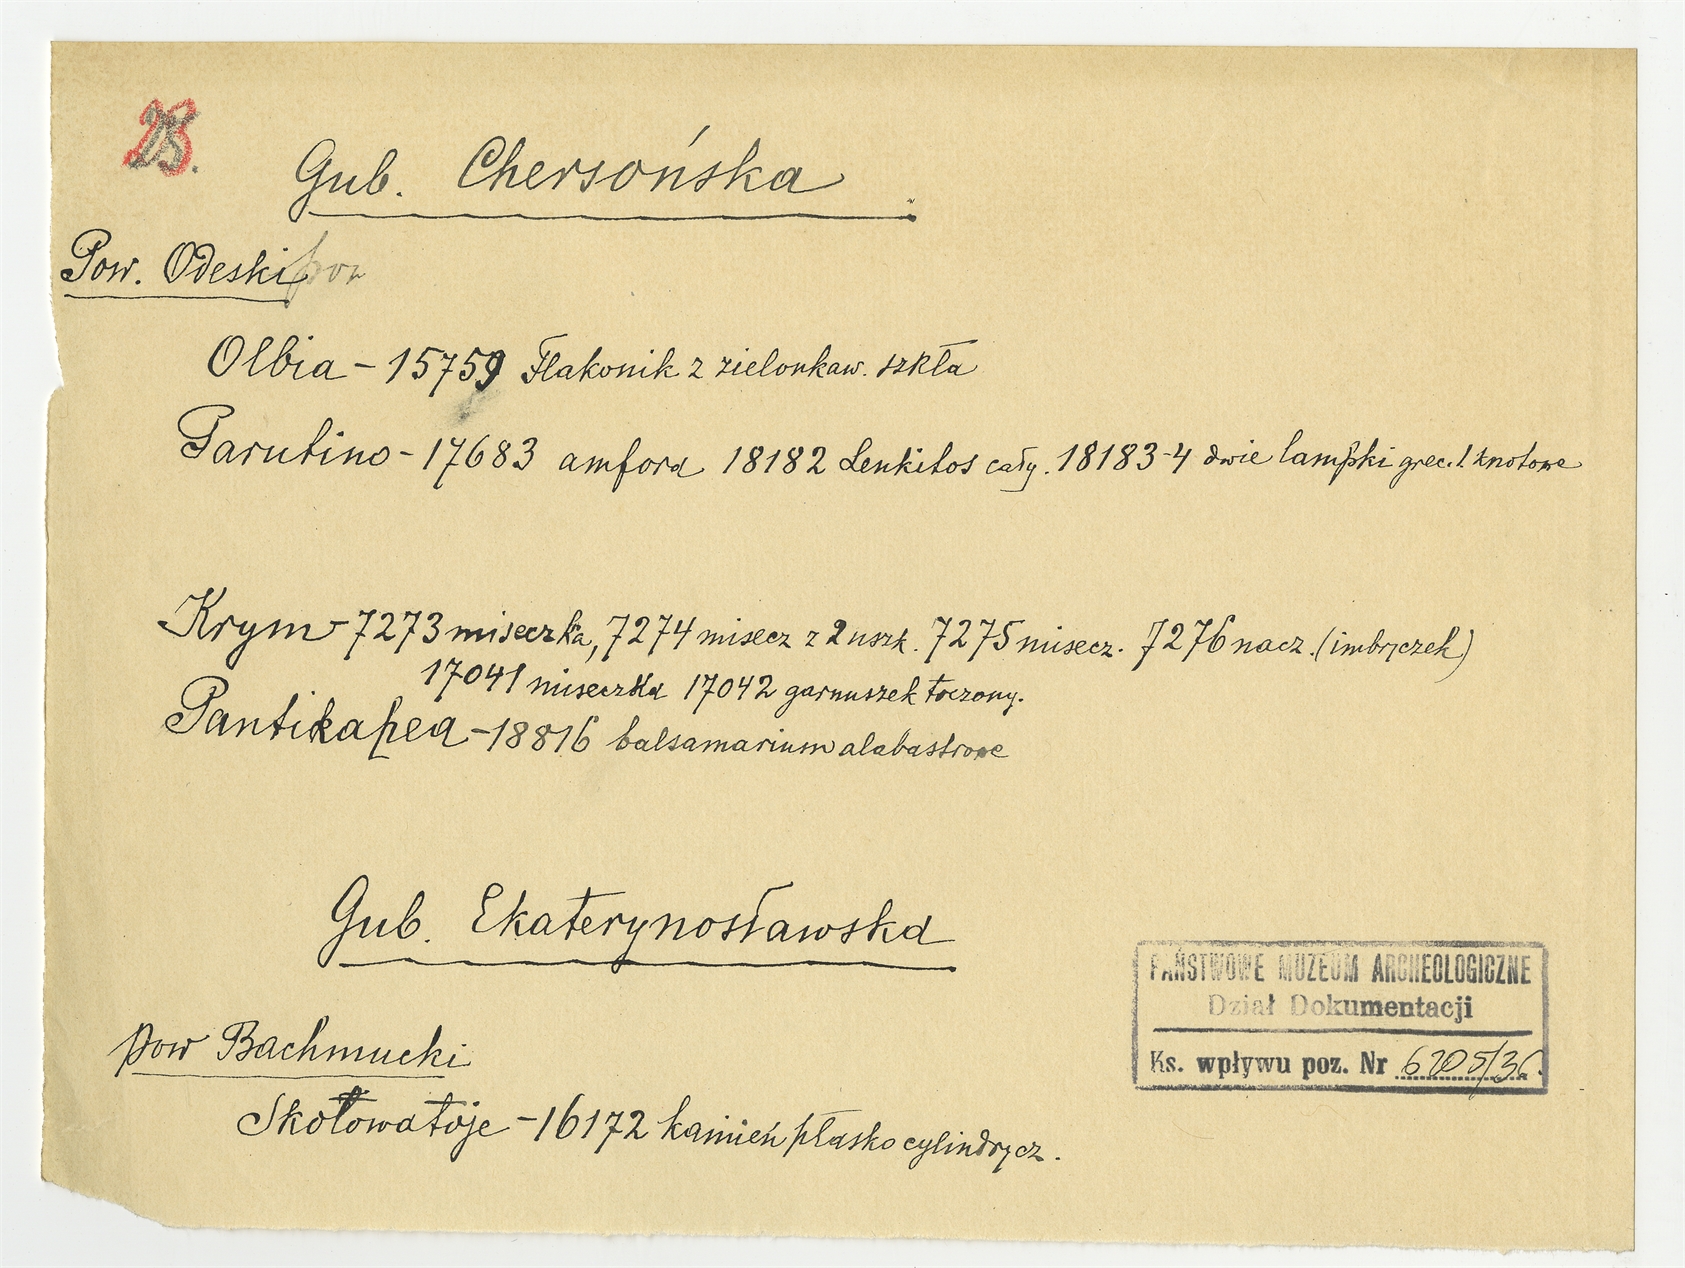 28.
Gub. Chersońska
Pow. Odeski pow
Olbia - 15759 Flakonik z zielonkaw. szkła
Parutino - 17683 amfora 18182 Lenkitos cały. 18183-4 dwie lampki grec. 1 knotowe
Krym - 7273 miseczka, 7274 misecz z 2 uszk. 7275 misecz. 7276 nacz. (imbryczek)
17041 miseczka 17042 garnuszek toczony.
Pantikapea - 18816 balsamarium alabastrowe
Gub. Ekaterynosławska
pow Bachmucki
Skotowatoje - 16172 kamień płasko cylindrycz.
PAŃSTWOWE MUZEUM ARCHEOLOGICZNE
Dział Dokumentacji
Ks. wpływu poz. Nr 6205/36.